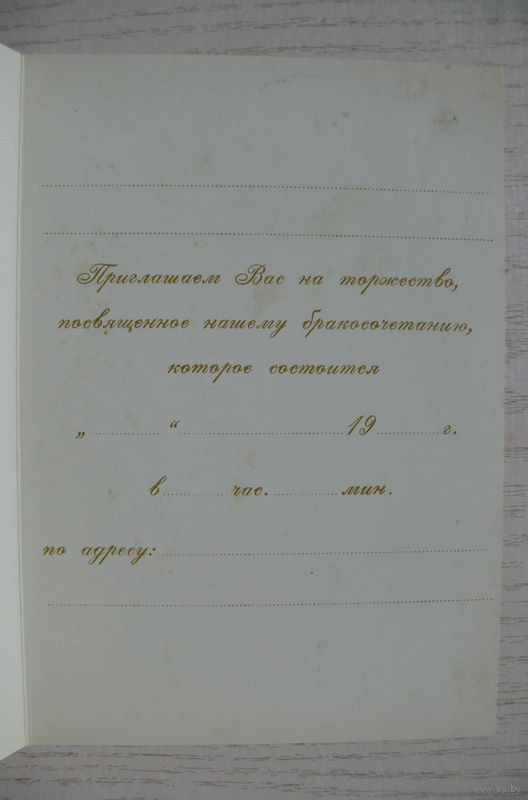 Приглашаем Вас на торжество,
посвященное нашему бракосочетанию,
которое состоится
„.............“........................... 19............г.
в............час.............мин.
по адресу:......................................................
www.ay.by